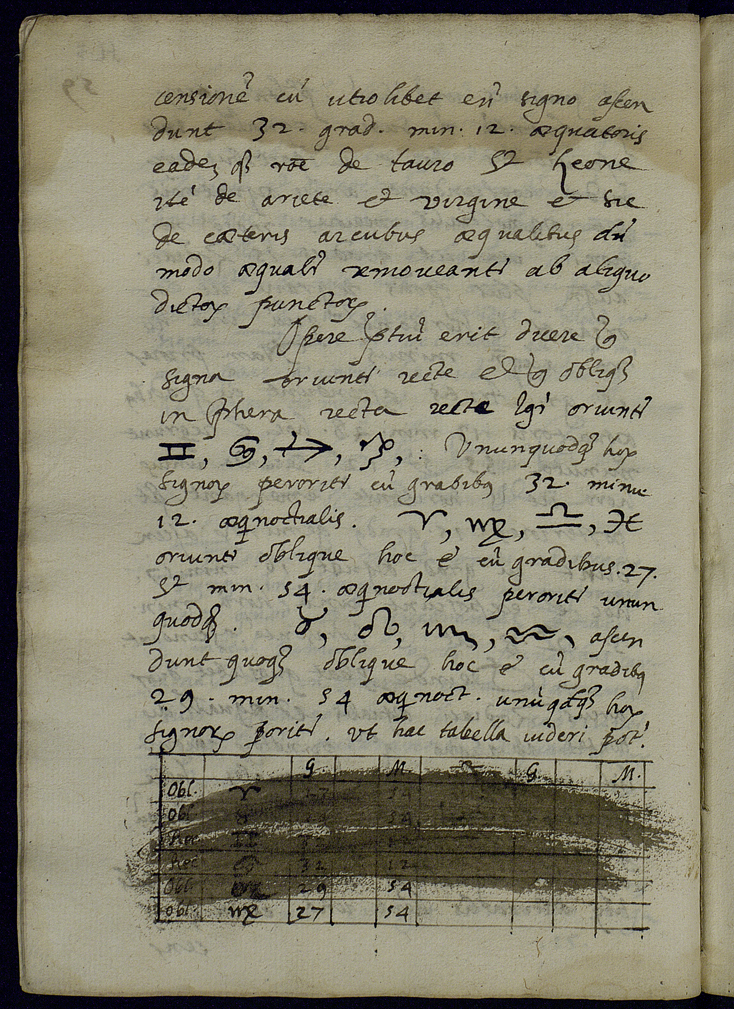 censionē cū utrolibet eñ signo ascen
dunt 32. grad. min. 12. æquatoris
eadeʒ qʒ rōe de tauro & Leone
itē de ariete et virgine et sic
de cæteris arcubus æqualibus dū
modo æqualr̄ remoueantr̄ ab aliquo
dictoꝝ punctoꝝ.
erit dicere
signa oriuntr̄ recte et obliqʒ
in sphera recta recte igr̄ oriuntr̄
♊, ♋, ♐, ♑, : Vnunquodqʒ hoꝝ
signoꝝ peroritr̄ cū gradibꝯ 32. minu
12. æqnoctialis. ♈, ♍, ♎, ♓
oriuntr̄ oblique hoc ē cū gradibus. 27.
& min. 54. æqnoctialis peroritr̄ unun
quodqʒ. ♉, ♌, ♏, ♒, ascen
dunt quoqʒ oblique hoc ē cū gradibꝯ
29. min. 54 æqnoct. unūqdqʒ hoꝝ
signoꝝ ꝑoritr̄. ut hac tabella uideri pōt.
G. M. G. M.
Obl. ♈ 27 54
Obl. 54
Rec.
Rec. 32 12
Obl. 29 54
Obl. ♍ 27 54